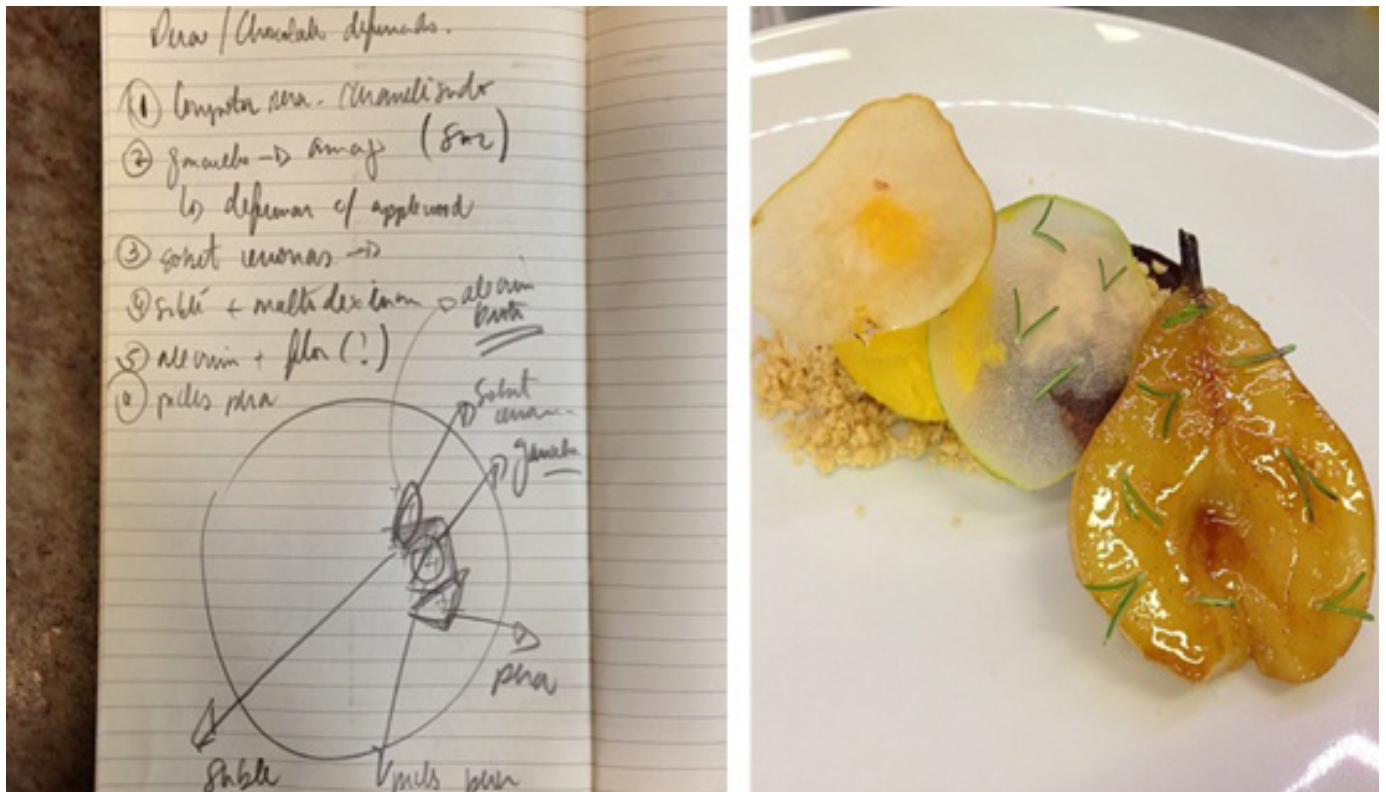 Pera / Chocolate defumado.
① Compota pera. caramelizado
② ganache → amaj (8m2)
↳ defumar c/ applewood
③ sorbet cenouras →
④ sablé + maltodextrina
⑤ alecrim + flor (?)
⑥ picles pera
alecrim
broto
sorbet
cenoura
ganache
pera
sable
picles pera